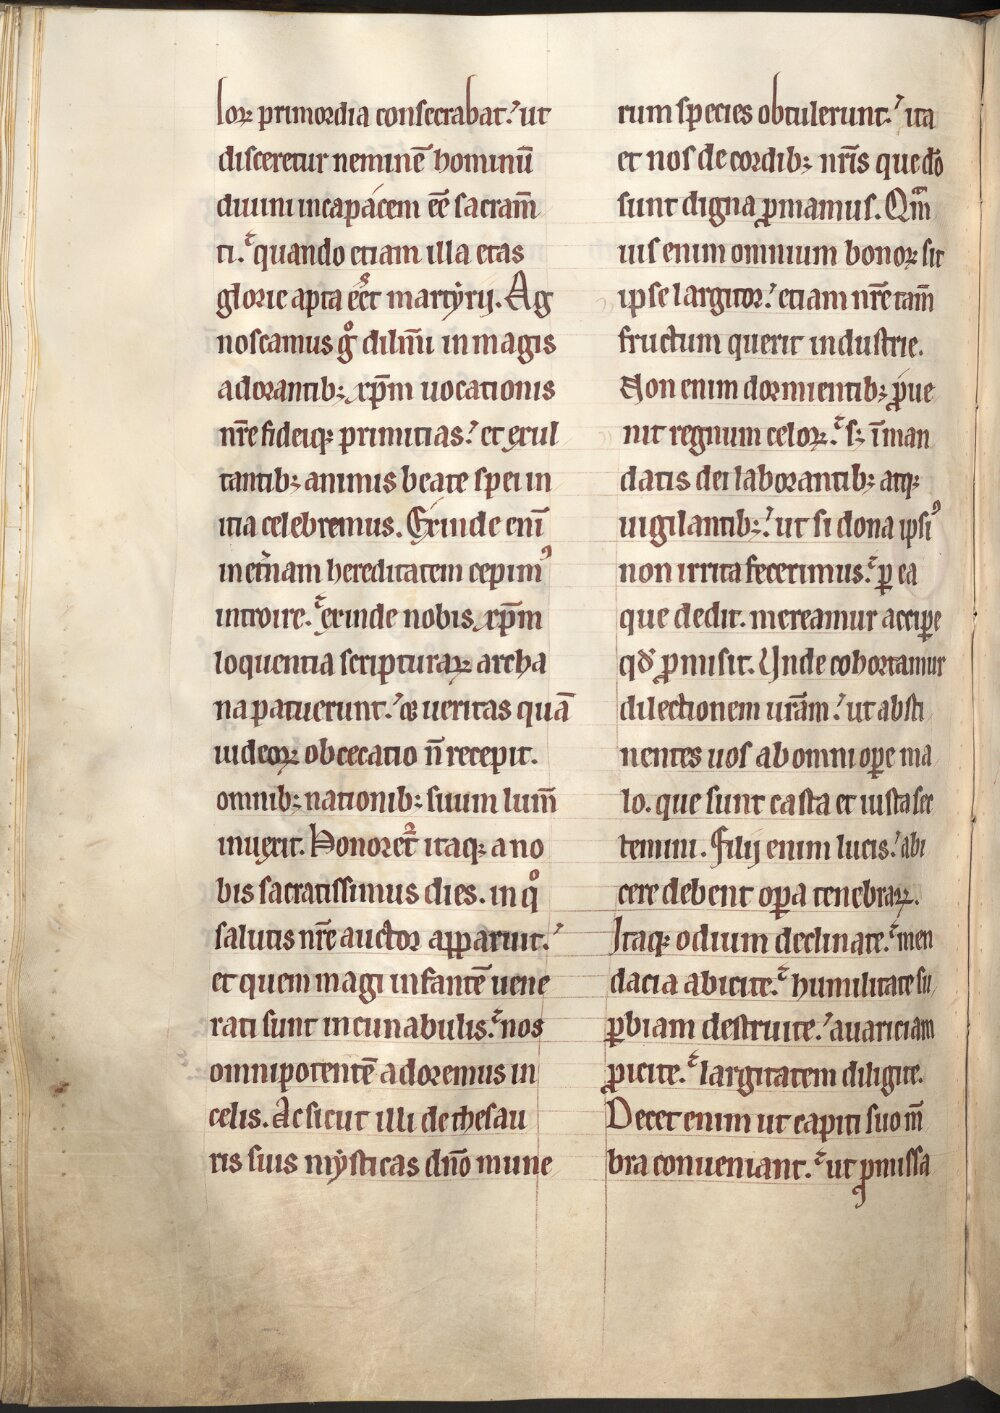 loꝝ primordia consecrabat. ut
disceretur neminē hominū
diuini incapácem eē̄ sacram̄
ti. quando etiam illa etas
glorie apta eēt martẏrij. Ag
noscamus gͦ dilm̄i in magis
adorantib; xp̄m uocationis
nr̄e fideiq; primitias. et exul
tantib; animis beate spei in
itia celebremus. Exinde eni̅
in et̄nam hereditatem cepimꝰ
introire. exinde nobis xp̄m
loquentia scripturaꝝ archa
na patuerunt. & ueritas quā
iudeoꝝ obcecatio n̄ recepit.
omnib; nationib; suum lum̄
inuexit. Honoret᷑ itaq; a no
bis sacratissimus dies. in qͦ
salutis nr̄e auctor apparuit.
et quem magi infantē uene
rati sunt in cunabulis. nos
omnipotentē adoremus in
celis. Ac sicut illi de thesau
ris suis mẏsticas dn̄o mune
rum species obtulerunt. ita
et nos de cordib; nr̄is que dō
sunt digna ꝓmamus. Qm̄
uis enim omnium bonoꝝ sit
ipse largitor. etiam nr̄e tam̄
fructum querit industrie.
Non enim dormientib; ꝓue
nit regnum celoꝝ. s; i̅ man
datis dei laborantib; atq;
uigilantib;. ut si dona ipsiꝰ
non irrita fecerimus. ꝑ ea
que dedit. mereamur acciꝑe
qd̄ ꝓmisit. Unde cohortamur
dilectionem ur̄am. ut absti
nentes uos ab omni oꝑe ma
lo. que sunt casta et iusta sec
temini. Filij enim lucis. abi
cere debent oꝑa tenebraꝝ.
Itaq; odium declinate. men
dacia abicite. humilitate su
ꝑbiam destruite. auariciam
ꝓicite. largitatem diligite.
Decet enim ut capiti suo m̄
bra conueniant. ut ꝓmissa